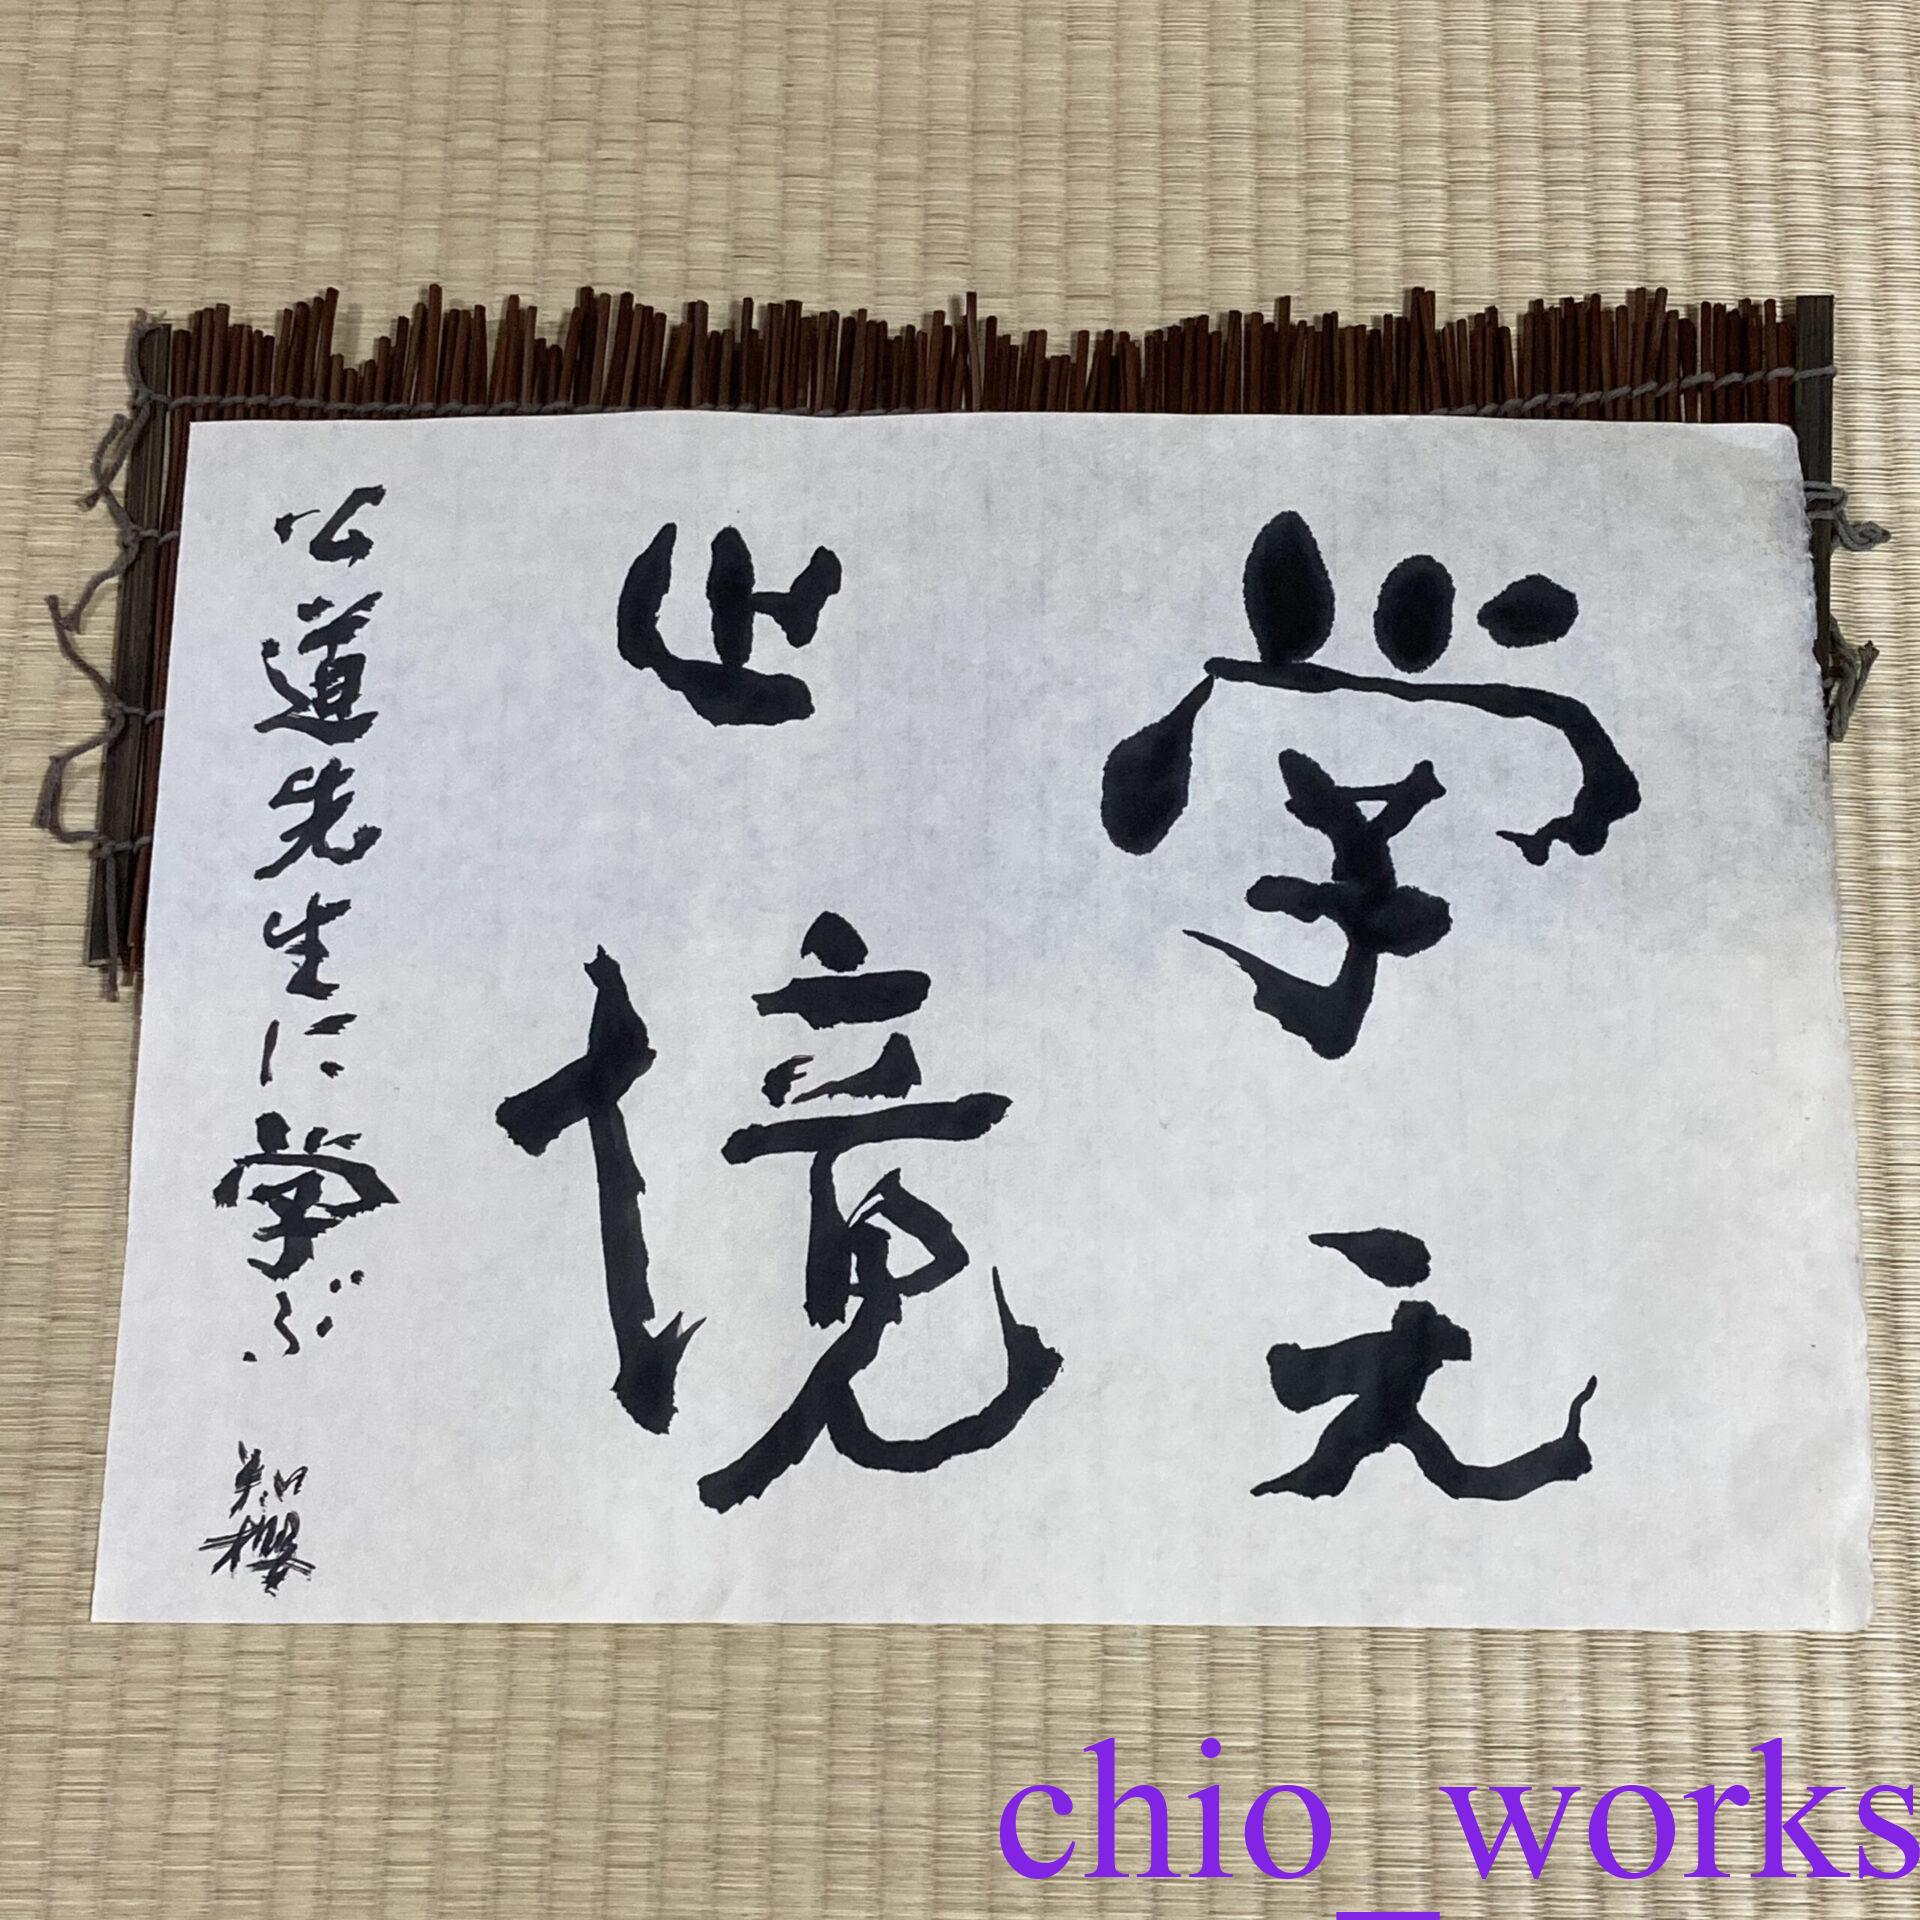 学无
止境
公道先生に学ぶ
知櫻
chio_works